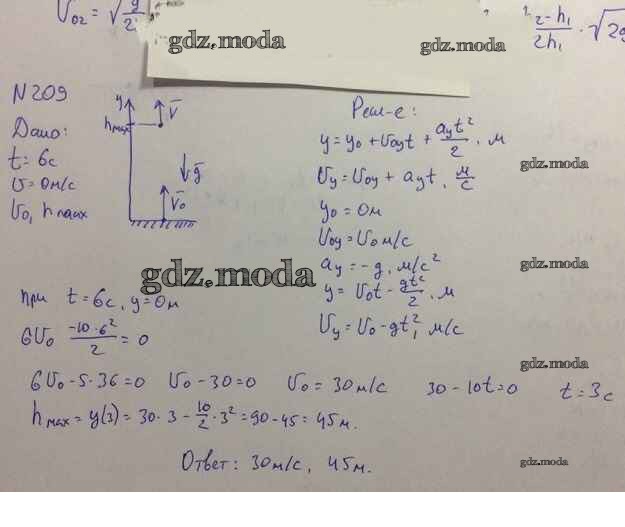 V₀₂ = √g/2
2-h₁/2h₁ · √2g
gdz.moda
gdz.moda
N209
Дано:
t = 6c
v = 0м/с
V₀, hmax
y
hmax
V
g
V₀
Реш-е:
y = y₀ + V₀yt + ayt²/2, м
Vy = V₀y + ayt, м/с
y₀ = 0м
V₀y = V₀ м/с
ay = -g, м/с²
y = V₀t - gt²/2, м
Vy = V₀ - gt, м/с
gdz.moda
gdz.moda
gdz.moda
при t = 6c, y = 0м
6V₀ -10·6²/2 = 0
gdz.moda
6V₀ - 5·36 = 0 V₀ - 30 = 0 V₀ = 30м/с 30 - 10t = 0 t = 3c
hмах = y(3) = 30·3 - 10/2·3² = 90 - 45 = 45м.
Ответ: 30м/с, 45м.
gdz.moda